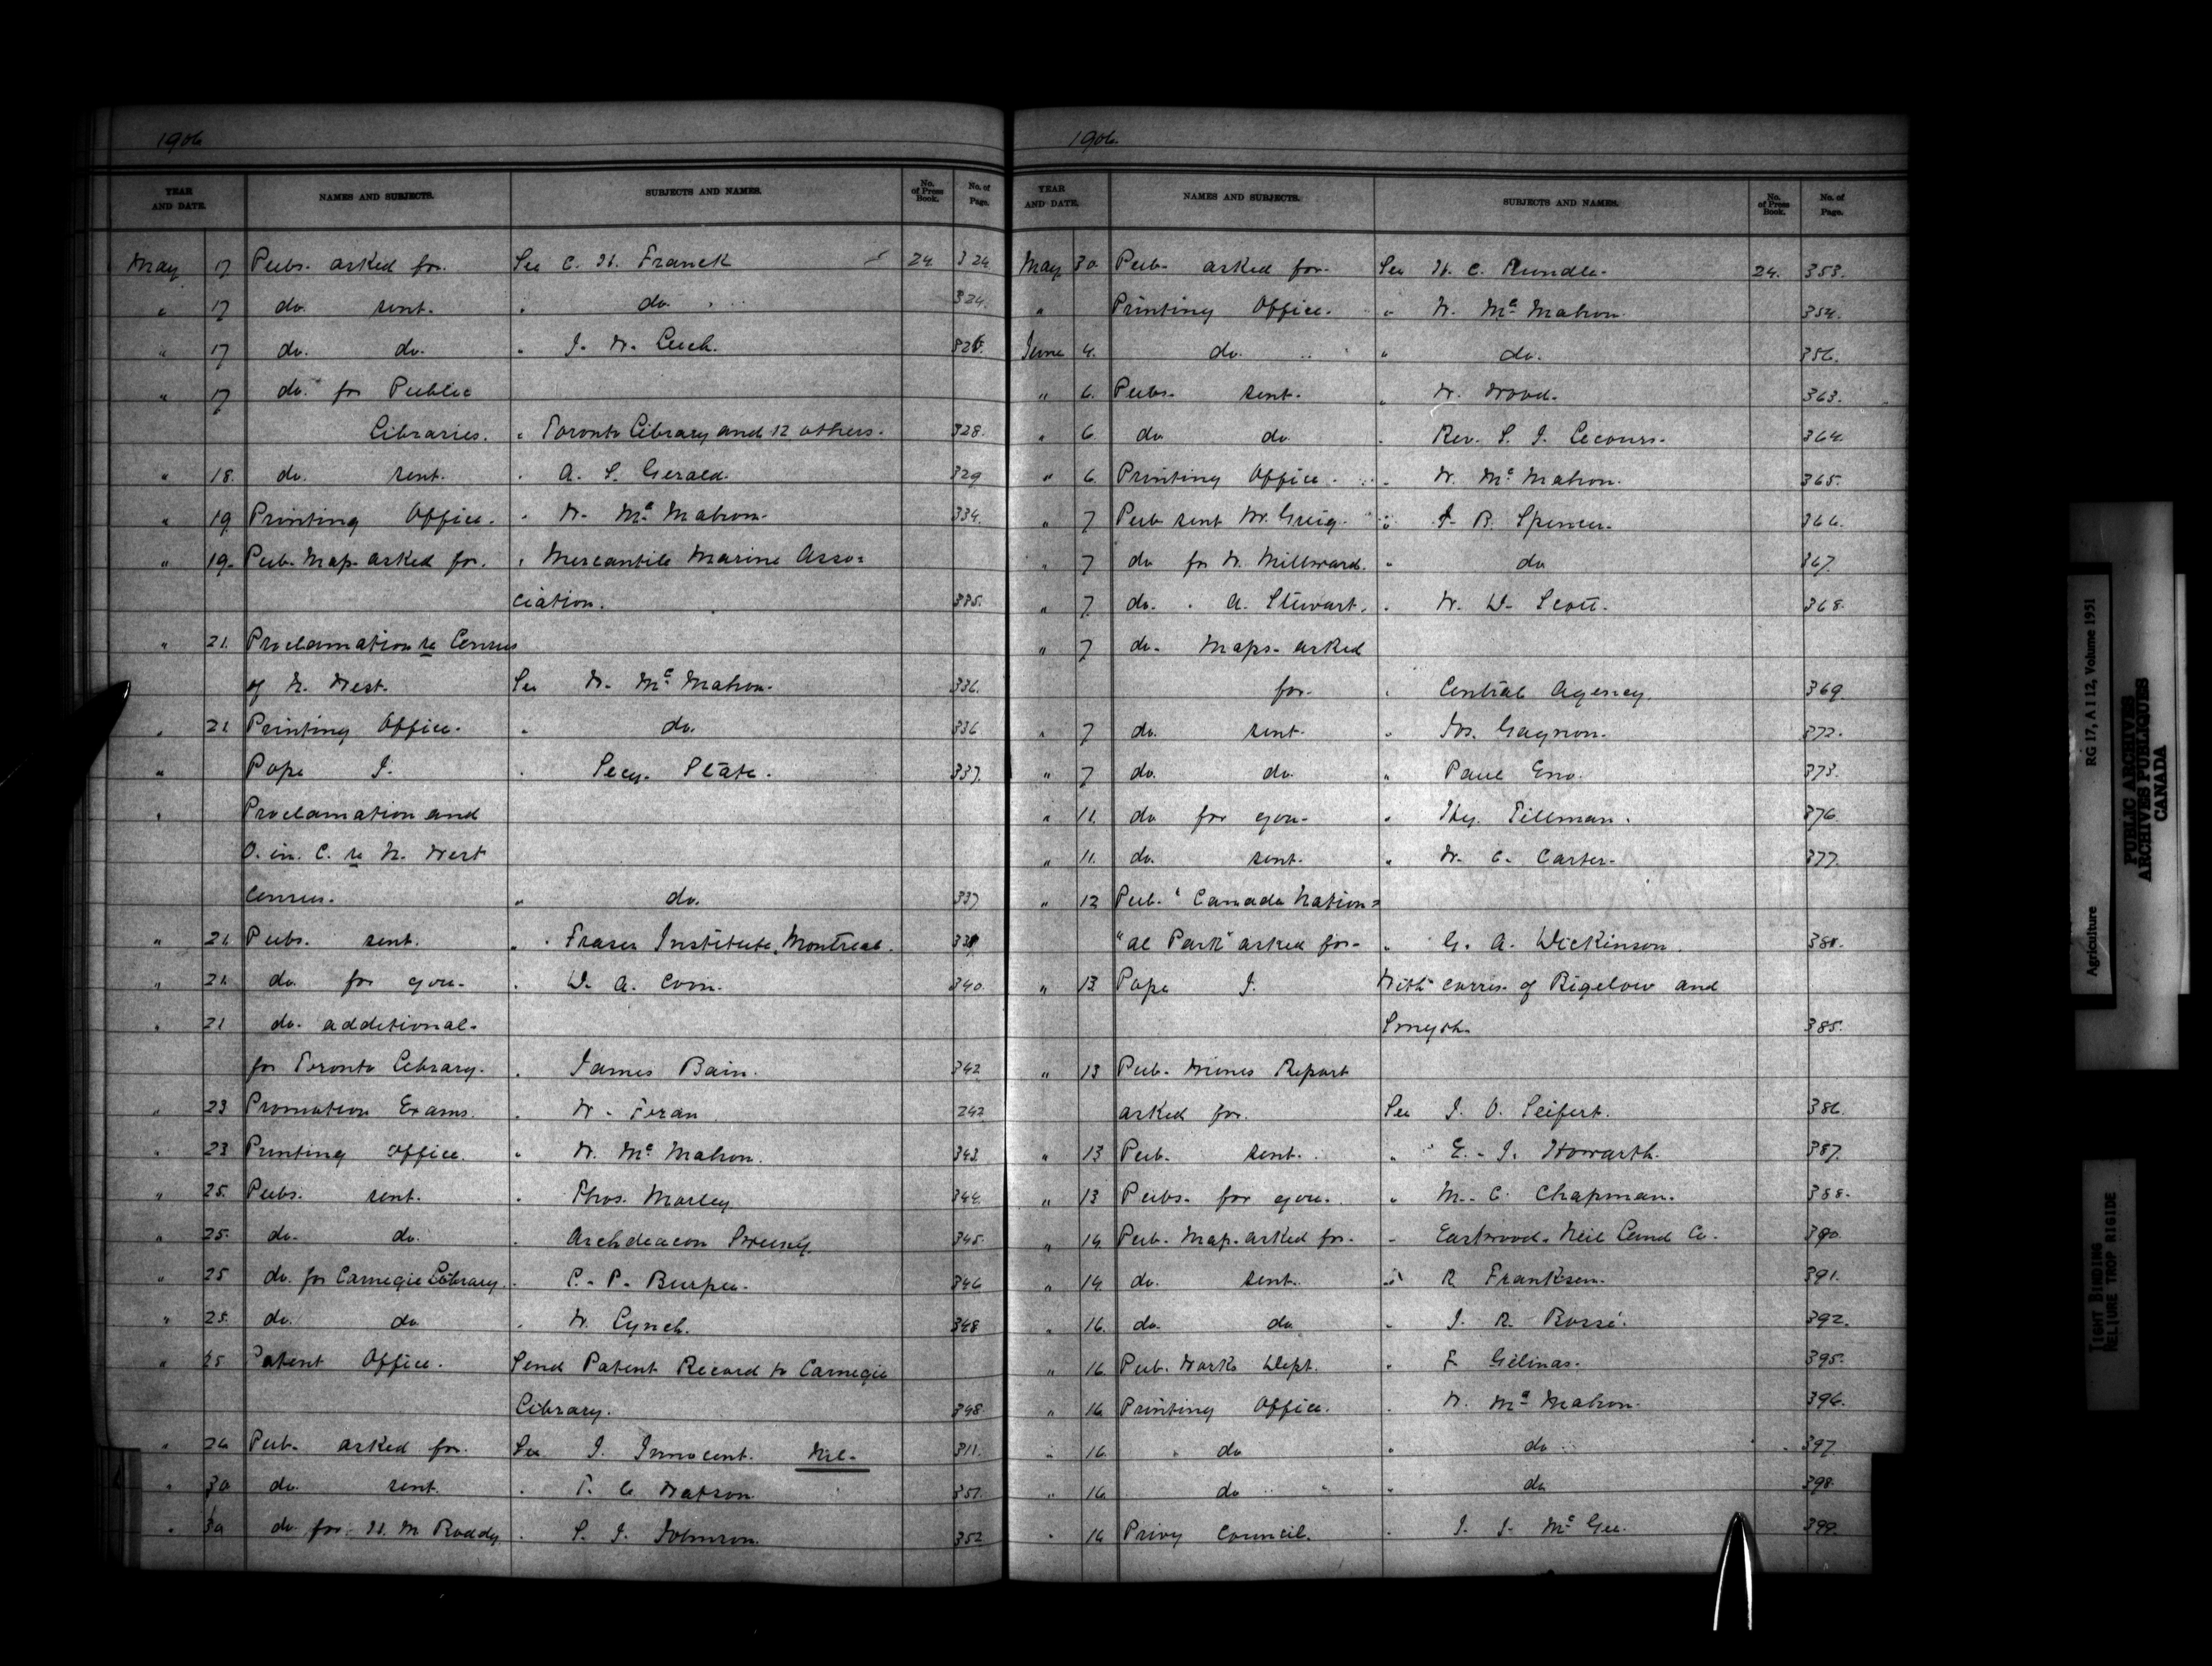 1906
YEAR AND DATE. NAMES AND SUBJECTS. SUBJECTS AND NAMES. No. of Press Book. No. of Page.
May 17 Pubs. asked for. See C. H. Franck 24. 324
" 17 do. sent. " do. 324.
" 17 do. do. " J. W. Leech.
" 17 do. for Public
Libraries. " Toronto Library and 12 others. 328.
" 18. do. sent. " A. S. Gerald. 329
" 19 Printing Office. " W. McMahon. 334.
" 19. Pub. Map. asked for. " Mercantile Marine Asso=
ciation. 335.
" 21. Proclamation re Census
of N. West. See W. McMahon. 336.
" 21 Printing Office. " do. 336
" Pope J. " Secy. State. 337.
" Proclamation and
O. in. C. re N. West
Census. " do. 337
" 21 Pubs. sent. " Fraser Institute, Montreal.
" 21. do. for you. " D. A. Coin. 340.
" 21 do. additional.
for Toronto Library. " James Bain. 342
" 23 Promotion Exams. " W. Foran 242
" 23 Printing Office. " W. McMahon. 343.
" 25. Pubs. sent. " Thos. Morley 344.
" 25. do. do. " Archdeacon 345.
" 25 do. for Carnegie Library. " C. P. Burpee. 346
" 25. do. do " W. Lynch. 348
" 25 Patent Office. Send Patent Record to Carnegie
Library. 348
" 26 Pub. asked for. See J. Innocent. Nil. 311.
" 30 do. sent. " T. C. Watson. 351.
" 30 do. for H. M. Roddy " S. J. Johnson. 352
1906.
YEAR AND DATE. NAMES AND SUBJECTS. SUBJECTS AND NAMES. No. of Press Book. No. of Page.
May 30 Pub. asked for. See H. C. Rundle. 24. 353.
" Printing Office. " W. McMahon. 354.
June 4. do. " do. 356.
" 6. Pubs. sent. " W. Wood. 363.
" 6 do do " Rev. S. J. Lecours. 364.
" 6. Printing Office. " W. McMahon. 365.
" 7 Pub sent W. Greig. " J. B. Spencer. 366.
" 7 do for W. Millward. " do 367.
" 7. do. " A. Stewart. " W. D. Scott. 368.
" 7 do. Maps. asked
for. " Central Agency. 369.
" 7 do. sent. " Jos. Gagnon. 372.
" 7 do. do. " Paul Eno. 373.
" 11. do for you. " Hy. Tillman. 376.
" 11. do. sent. " W. C. Carter. 377.
" 12 Pub. "Canada Nation=
"al Park" asked for. " G. A. Dickinson.
" 13 Pope J. With corres. of Bigelow and
Smyth. 385.
" 13 Pub. Mines Report
asked for. See J. O. Seifert. 386.
" 13 Pub. sent. " E. J. Howarth. 387.
" 13 Pubs. for you. " M. C. Chapman. 388.
" 14. Pub. Map. asked for. " Eastwood. Neil Land Co. 390.
" 14. do. sent. " R. Franksen. 391.
" 16. do. do " J. R. Rossé. 392.
" 16. Pub. Works Dept. " F. Gélinas. 395.
" 16 Printing Office. " W. McMahon. 396.
" 16 " do " do 397.
" 16 do " do 398.
" 16 Privy Council. " J. J. McGee. 399.
Agriculture RG 17, A I 12, Volume 1951
PUBLIC ARCHIVES
ARCHIVES PUBLIQUES
CANADA
TIGHT BINDING
RELIURE TROP RIGIDE